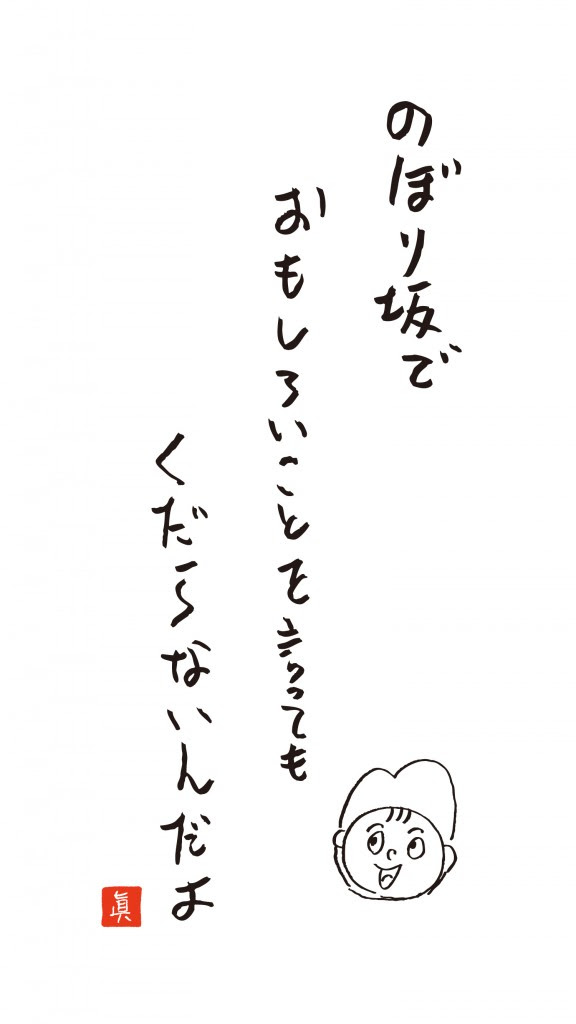 のぼり坂で
おもしろいことを言っても
くだらないんだよ
眞